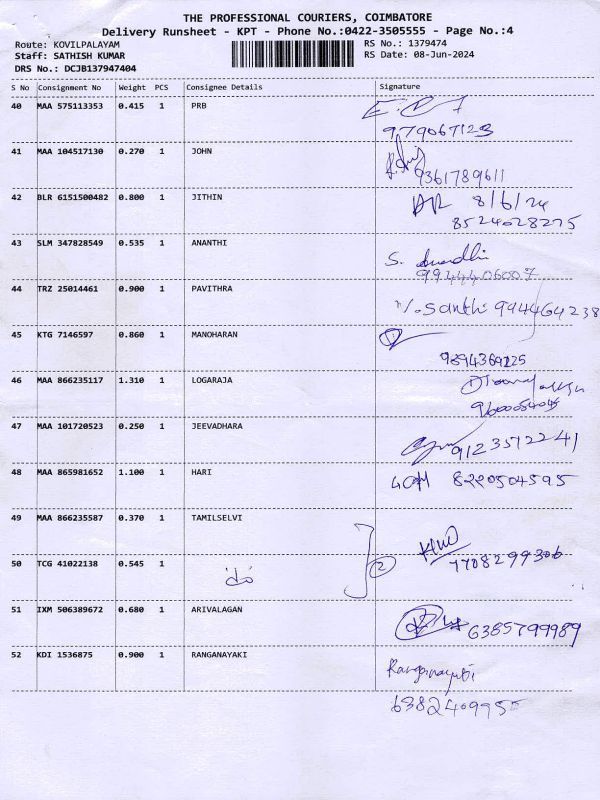 THE PROFESSIONAL COURIERS, COIMBATORE
Delivery Runsheet - KPT - Phone No.:0422-3505555 - Page No.:4
Route: KOVILPALAYAM RS No.: 1379474
Staff: SATHISH KUMAR RS Date: 08-Jun-2024
DRS No.: DCJB137947404
S No Consignment No Weight PCS Consignee Details Signature
40 MAA 575113353 0.415 1 PRB
979067123
41 MAA 104517130 0.270 1 JOHN
9361789611
42 BLR 6151500482 0.800 1 JITHIN 8/6/24
8524028275
43 SLM 347828549 0.535 1 ANANTHI S. Anandhi
9944406007
44 TRZ 25014461 0.900 1 PAVITHRA Santhi 9944464238
45 KTG 7146597 0.860 1 MANOHARAN
9894369225
46 MAA 866235117 1.310 1 LOGARAJA
9600054045
47 MAA 101720523 0.250 1 JEEVADHARA 9123512241
48 MAA 865981652 1.100 1 HARI 8220504595
49 MAA 866235587 0.370 1 TAMILSELVI
50 TCG 41022138 0.545 1 2 7708299306
do
51 IXM 506389672 0.680 1 ARIVALAGAN 6385799989
52 KDI 1536875 0.900 1 RANGANAYAKI Ranganayaki
6382409955